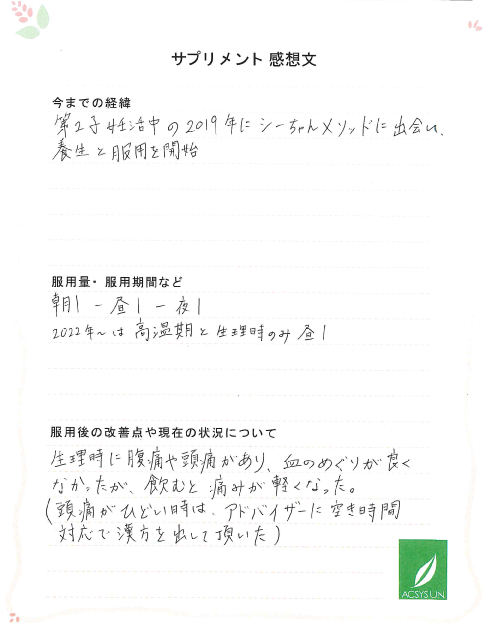 サプリメント 感想文
今までの経緯
第2子妊活中の2019年にシーちゃんメソッドに出会い、
養生と服用を開始
服用量・服用期間など
朝1 － 昼1 － 夜1
2022年〜は 高温期と生理時のみ 昼1
服用後の改善点や現在の状況について
生理時に腹痛や頭痛があり、血のめぐりが良く
なかったが、飲むと痛みが軽くなった。
(頭痛がひどい時は、アドバイザーに空き時間
対応で漢方を出して頂いた)
ACSYSUN